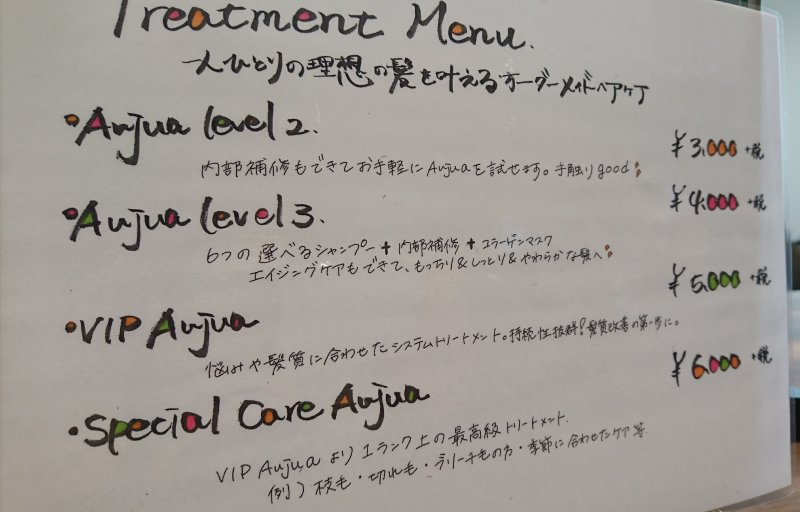 Treatment Menu.
一人ひとりの理想の髪を叶えるオーダーメイドヘアケア
•Aujua level 2.
¥3,000+税
内部補修もできてお手軽にAujuaを試せます。手触りgood
•Aujua level 3.
¥4,000+税
6つの選べるシャンプー+内部補修+コラーゲンマスク
エイジングケアもできて、もっちり&しっとり&やわらかな髪へ
¥5,000+税
•VIP Aujua
悩みや髪質に合わせたシステムトリートメント。持続性抜群!髪質改善の第一歩に。
¥6,000+税
•Special Care Aujua
VIP Aujuaより1ランク上の最高級トリートメント.
例)枝毛・切れ毛・ブリーチ毛の方・季節に合わせたケア等